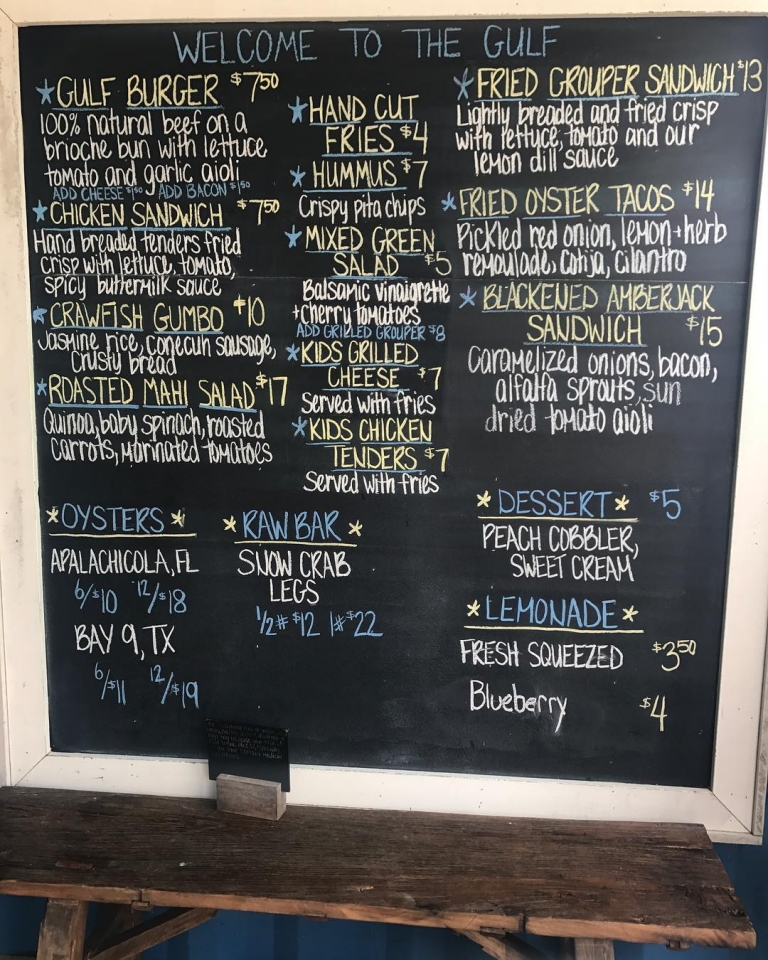 WELCOME TO THE GULF
GULF BURGER $7.50
100% natural beef on a
brioche bun with lettuce
tomato and garlic aioli
ADD CHEESE $1.50 ADD BACON $1.50
CHICKEN SANDWICH $7.50
Hand breaded tenders fried
crisp with lettuce, tomato,
spicy buttermilk sauce
CRAWFISH GUMBO $10
Jasmine rice, conecuh sausage,
crusty bread
ROASTED MAHI SALAD $17
Quinoa, baby spinach, roasted
carrots, marinated tomatoes
HAND CUT
FRIES $4
HUMMUS $7
Crispy pita chips
MIXED GREEN
SALAD $5
Balsamic vinaigrette
+ cherry tomatoes
ADD GRILLED GROUPER $8
KIDS GRILLED
CHEESE $7
Served with fries
KIDS CHICKEN
TENDERS $7
Served with fries
FRIED GROUPER SANDWICH $13
Lightly breaded and fried crisp
with lettuce, tomato and our
lemon dill sauce
FRIED OYSTER TACOS $14
Pickled red onion, lemon + herb
remoulade, cotija, cilantro
BLACKENED AMBERJACK
SANDWICH $15
Caramelized onions, bacon,
alfalfa sprouts, sun
dried tomato aioli
OYSTERS
APALACHICOLA, FL
6/$10 12/$18
BAY 9, TX
6/$11 12/$19
RAW BAR
SNOW CRAB
LEGS
1/2# $12 1# $22
DESSERT $5
PEACH COBBLER,
SWEET CREAM
LEMONADE
FRESH SQUEEZED $3.50
Blueberry $4